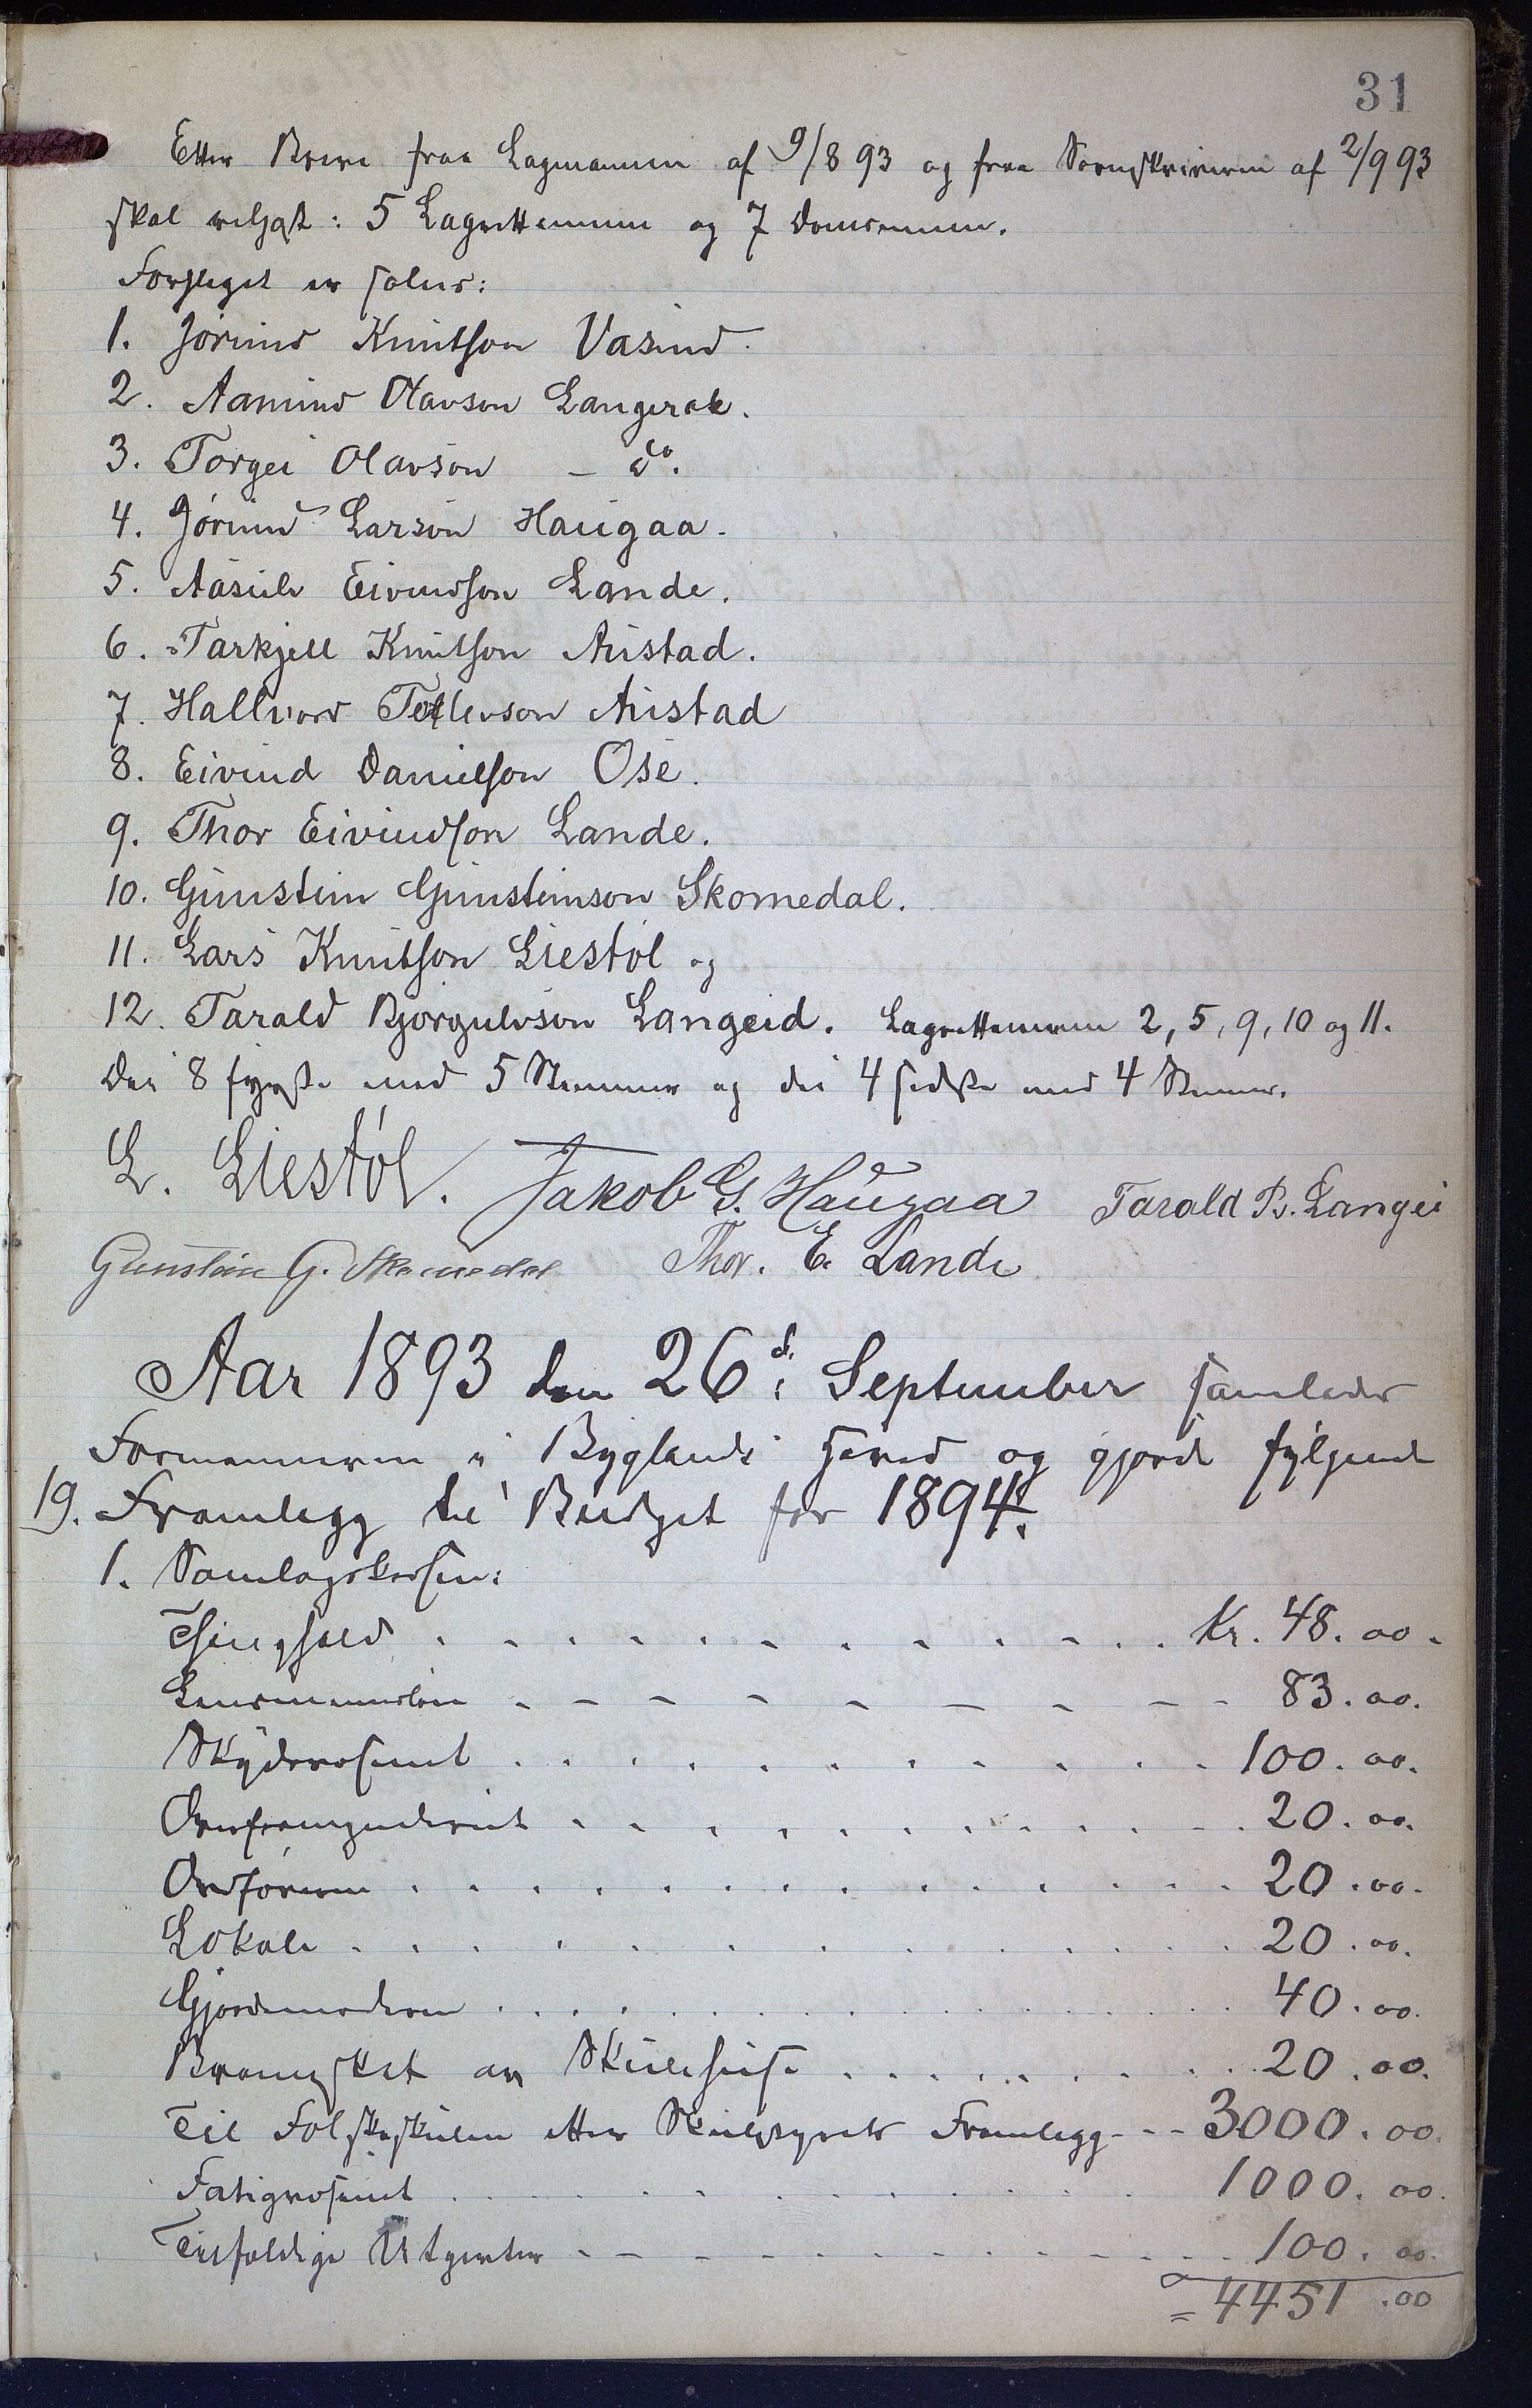 31
Etter Breve fraa Lagmannen af 9/8 93 og fraa Sorenskriveren af 2/9 93
skal veljast: 5 Lagrettemenn og 7 Domsmenn.
Forslaget er soleis:
1. Jórund Knutson Vasend.
2. Aamund Olavson Langerak.
3. Torgei Olavson – do.
4. Jórund Larson Haugaa.
5. Aasulv Eivindson Lande.
6. Tarkjell Knutson Austad.
7. Hallvord Tellevson Austad
8. Eivind Danielson Ose.
9. Thor Eivindson Lande.
10. Gunstein Gunsteinson Skomedal.
11. Lars Knutson Liestól og
12. Tarald Bjorgulvson Langeid. Lagrettemenn 2, 5, 9, 10 og 11.
Dei 8 fyrste med 5 Stemmer og dei 4 sidste med 4 Stemmer.
L. Liestól. Jakob G. Haugaa Tarald B. Langei
Gunstein G. Skomedal Thor. E. Lande
Aar 1893 den 26d: September samlades
Formennerne i Byglands Hered og gjorde fylgjende
19. Framlegg til Budget for 1894.
1. Samlagskassen:
Thinghald . . . . . . . . . . . . Kr. 48. 00.
Lensmannslón - - - - - - - - 83. 00.
Skydsvæsenet . . . . . . . . . . . 100. 00.
Overformynderiet . . . . . . . . . . . 20. 00.
Ordføreren . . . . . . . . . . . . . 20. 00.
Lokale . . . . . . . . . . . . . 20. 00.
Gjordmoderen . . . . . . . . . . . . 40. 00.
Branskat av Skulehuse . . . . . . . . 20. 00.
Til Folkeskulen etter Skulestyrets Framlegg - - 3000. 00.
Fatigvæsenet . . . . . . . . . . . 1000. 00.
Tilfældige Utgifter - - - - - - - - - - - 100. 00.
= 4451 .00